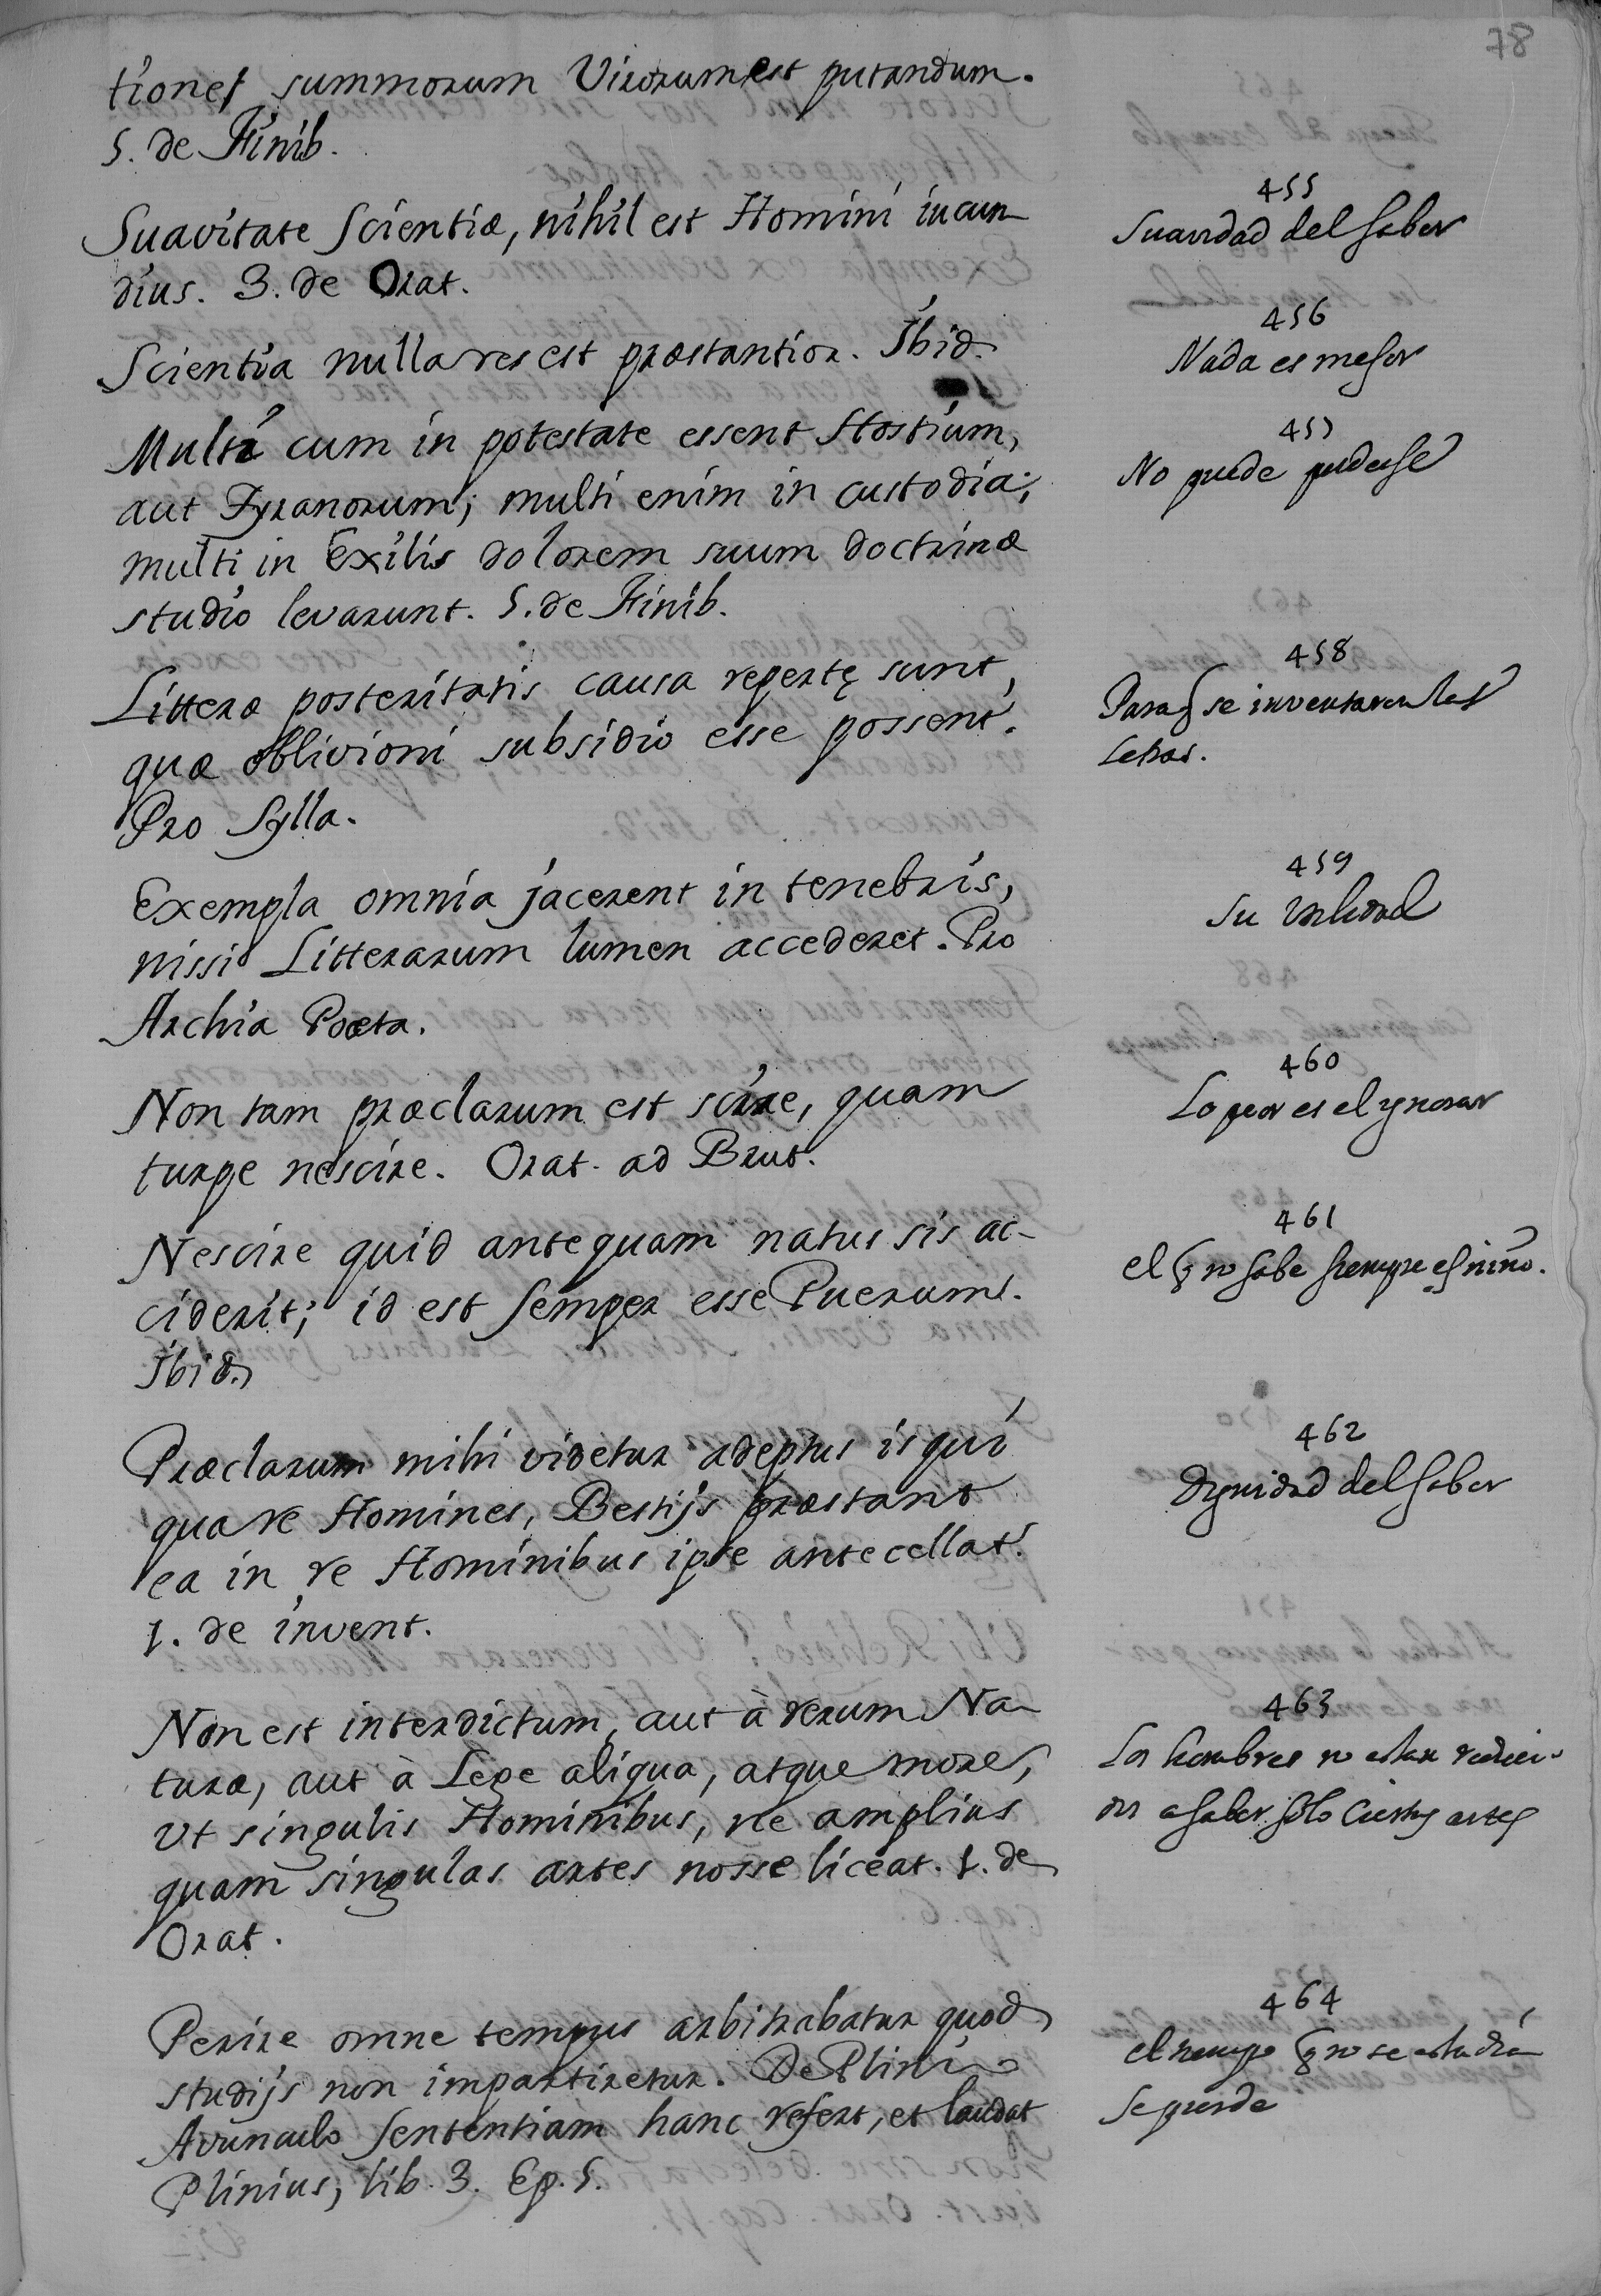 78
tiones summorum Virorum est putandum.
5. de Finib.
455
Suavitate Scientiæ, nihil est Homini iucun
dius. 3. de Orat.
Suavidad del saber
456
Scientia nulla res est præstantior. Ibid.
Nada es mejor
457
Multi cum in potestate essent Hostium,
aut Tyranorum; multi enim in custodia;
multi in Exilis dolorem suum doctrinæ
studio levarunt. 5. de Finib.
No puede
458
Litteræ posteritatis causa repertę sunt,
quæ oblivioni subsidio esse possent.
Pro Sylla.
Para q se inventaron las
Letras.
459
Exempla omnia jacerent in tenebris,
nissi Litterarum lumen accederet. Pro
Archia Poeta.
Su utilidad
460
Non tam præclarum est scire, quam
turpe nescire. Orat. ad Brut.
Lo peor es el ygnorar
461
Nescire quid antequam natus sis ac-
ciderit; id est semper esse Puerum.
Ibid.
el q no sabe siempre es niño.
462
Præclarum mihi videtur adeptus is qui
qua re Homines, Bestijs præstant
ea in re Hominibus ipse antecellat.
1. de invent.
Dignidad del saber
463
Non est interdictum, aut à rerum Na
turæ, aut à Lege aliqua, atque more,
Vt singulis Hominibus, ne amplius
quam singulas artes nosse liceat. 1. de
Orat.
Los hombres no estan reduci-
dos a saber solo Ciertas artes
464
Perire omne tempus arbitrabatur quod
studijs non impartiretur. De Plinio
Avunculo Sententiam hanc refert, et laudat
Plinius, lib. 3. Ep. 5.
el tiempo q no se estudia
se pierde